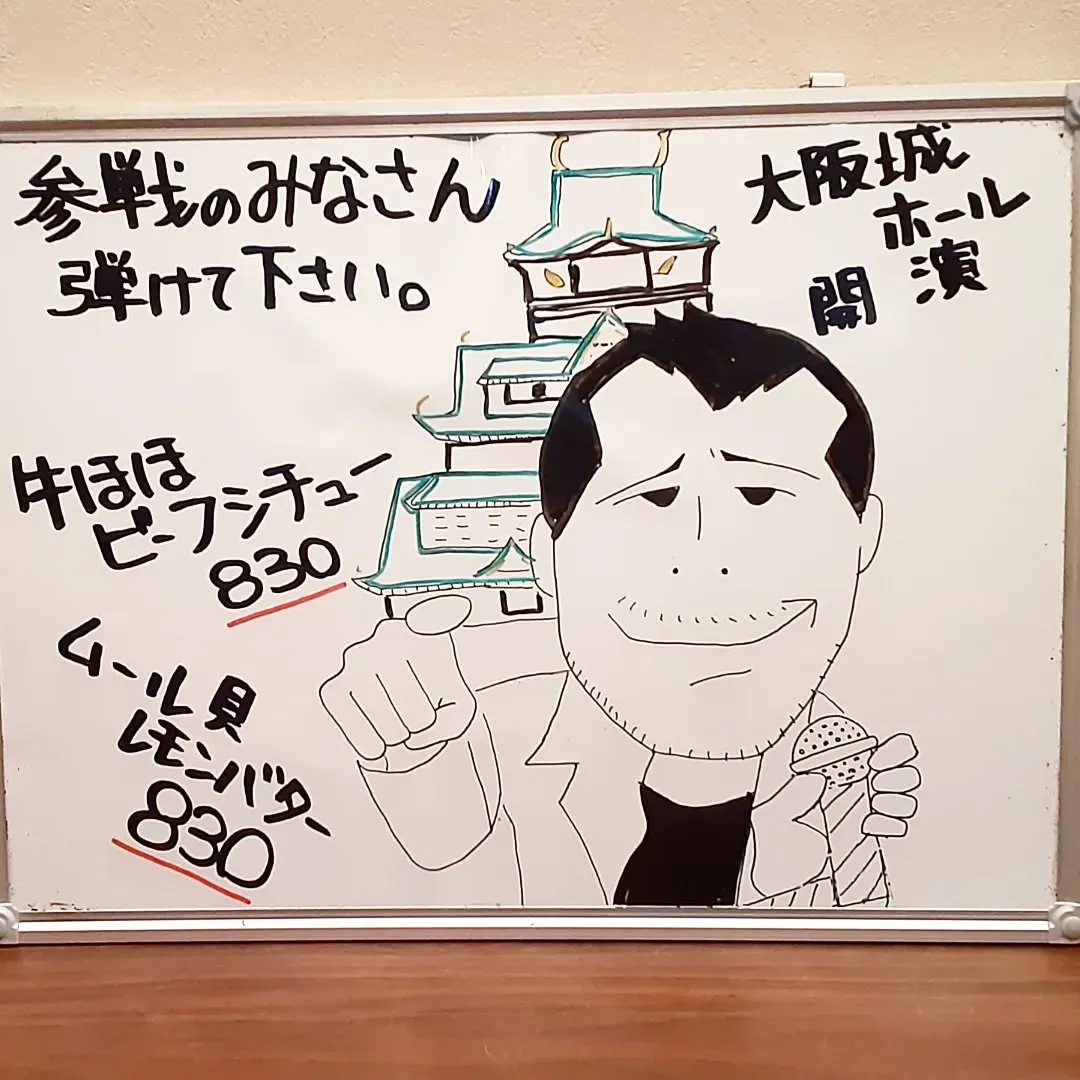 参戦のみなさん
弾けて下さい。
大阪城
ホール
開演
牛ほほ
ビーフシチュー
830
ムール貝
レモンバター
830